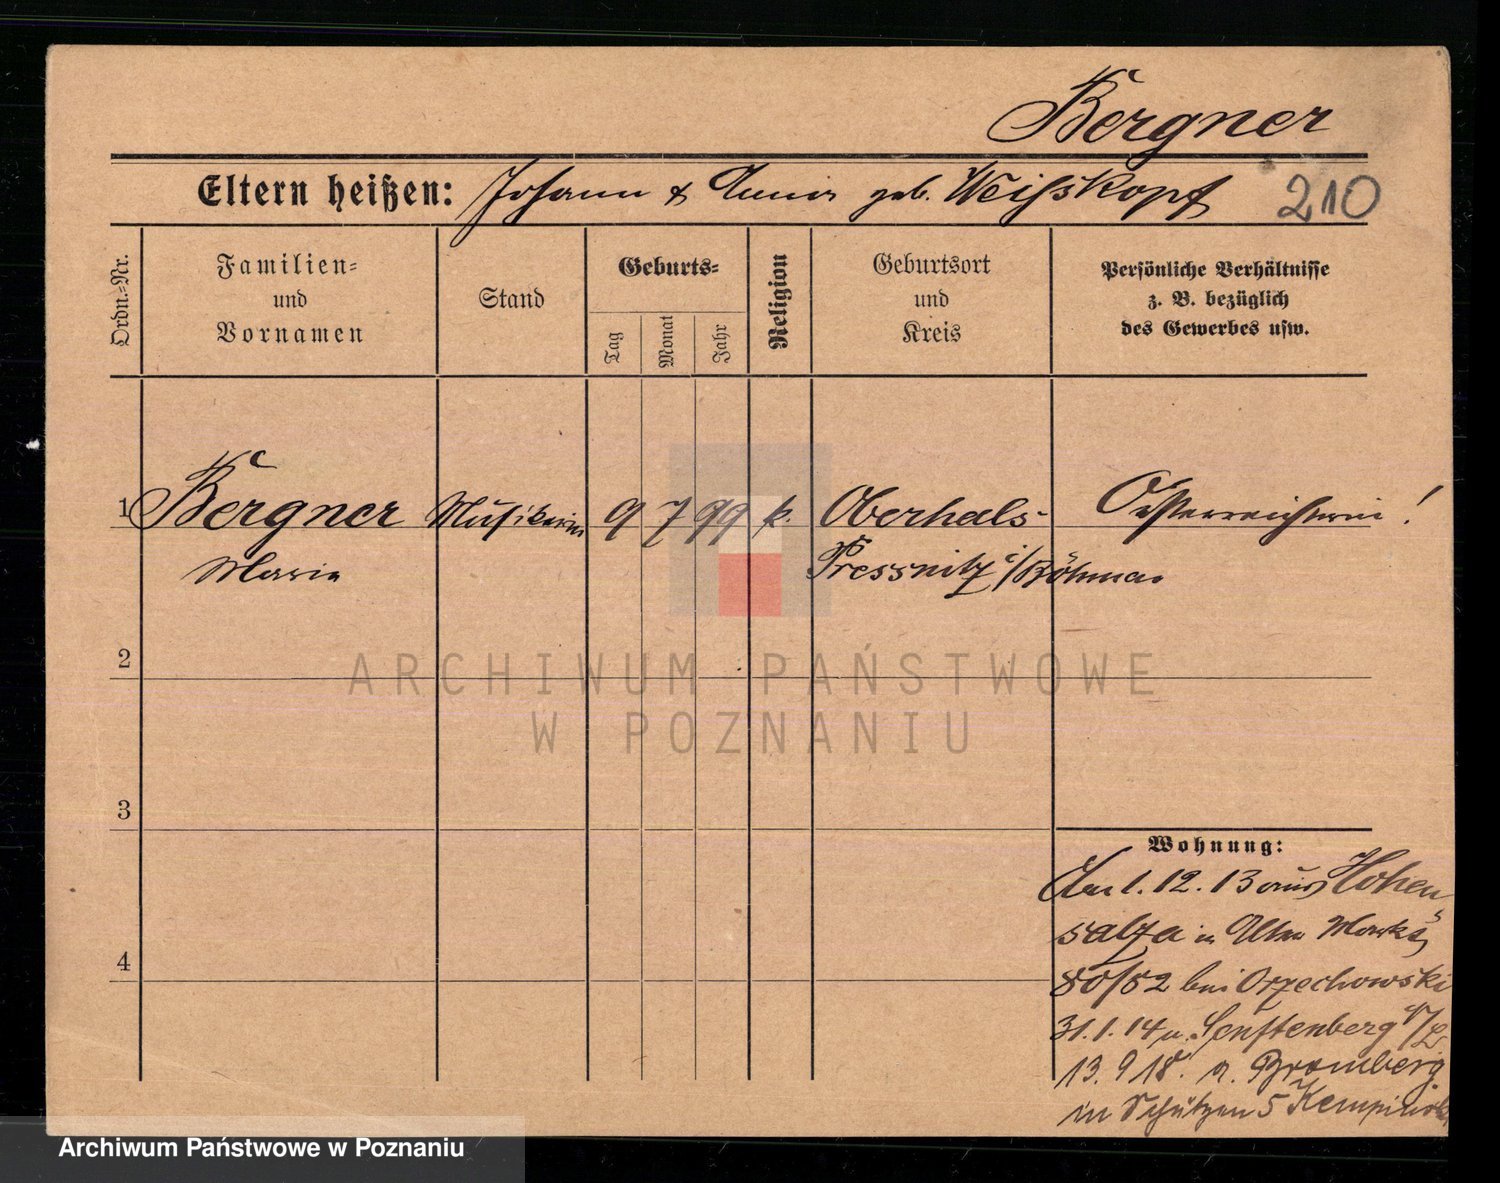 Bergner
Eltern heißen: Johann & Anna geb. Weißkopf 210
Ordn.-Nr.
Familien-
und
Vornamen
Stand
Geburts-
Tag
Monat
Jahr
Religion
Geburtsort
und
Kreis
Persönliche Verhältnisse
z. B. bezüglich
des Gewerbes usw.
1 Bergner Musikerin 9 7 99 k. Oberhals- Oesterreicherin!
Maria Pressnitz i/Böhmen
2
ARCHIWUM PAŃSTWOWE
W POZNANIU
3
Wohnung:
1. 12. 13 aus Hohen
salza in Alter Markt
80/82 bei Orzechowski
4
31. 1. 14 n. Senftenberg
13. 9 18. n. Bromberg
in Schützen 5
Archiwum Państwowe w Poznaniu